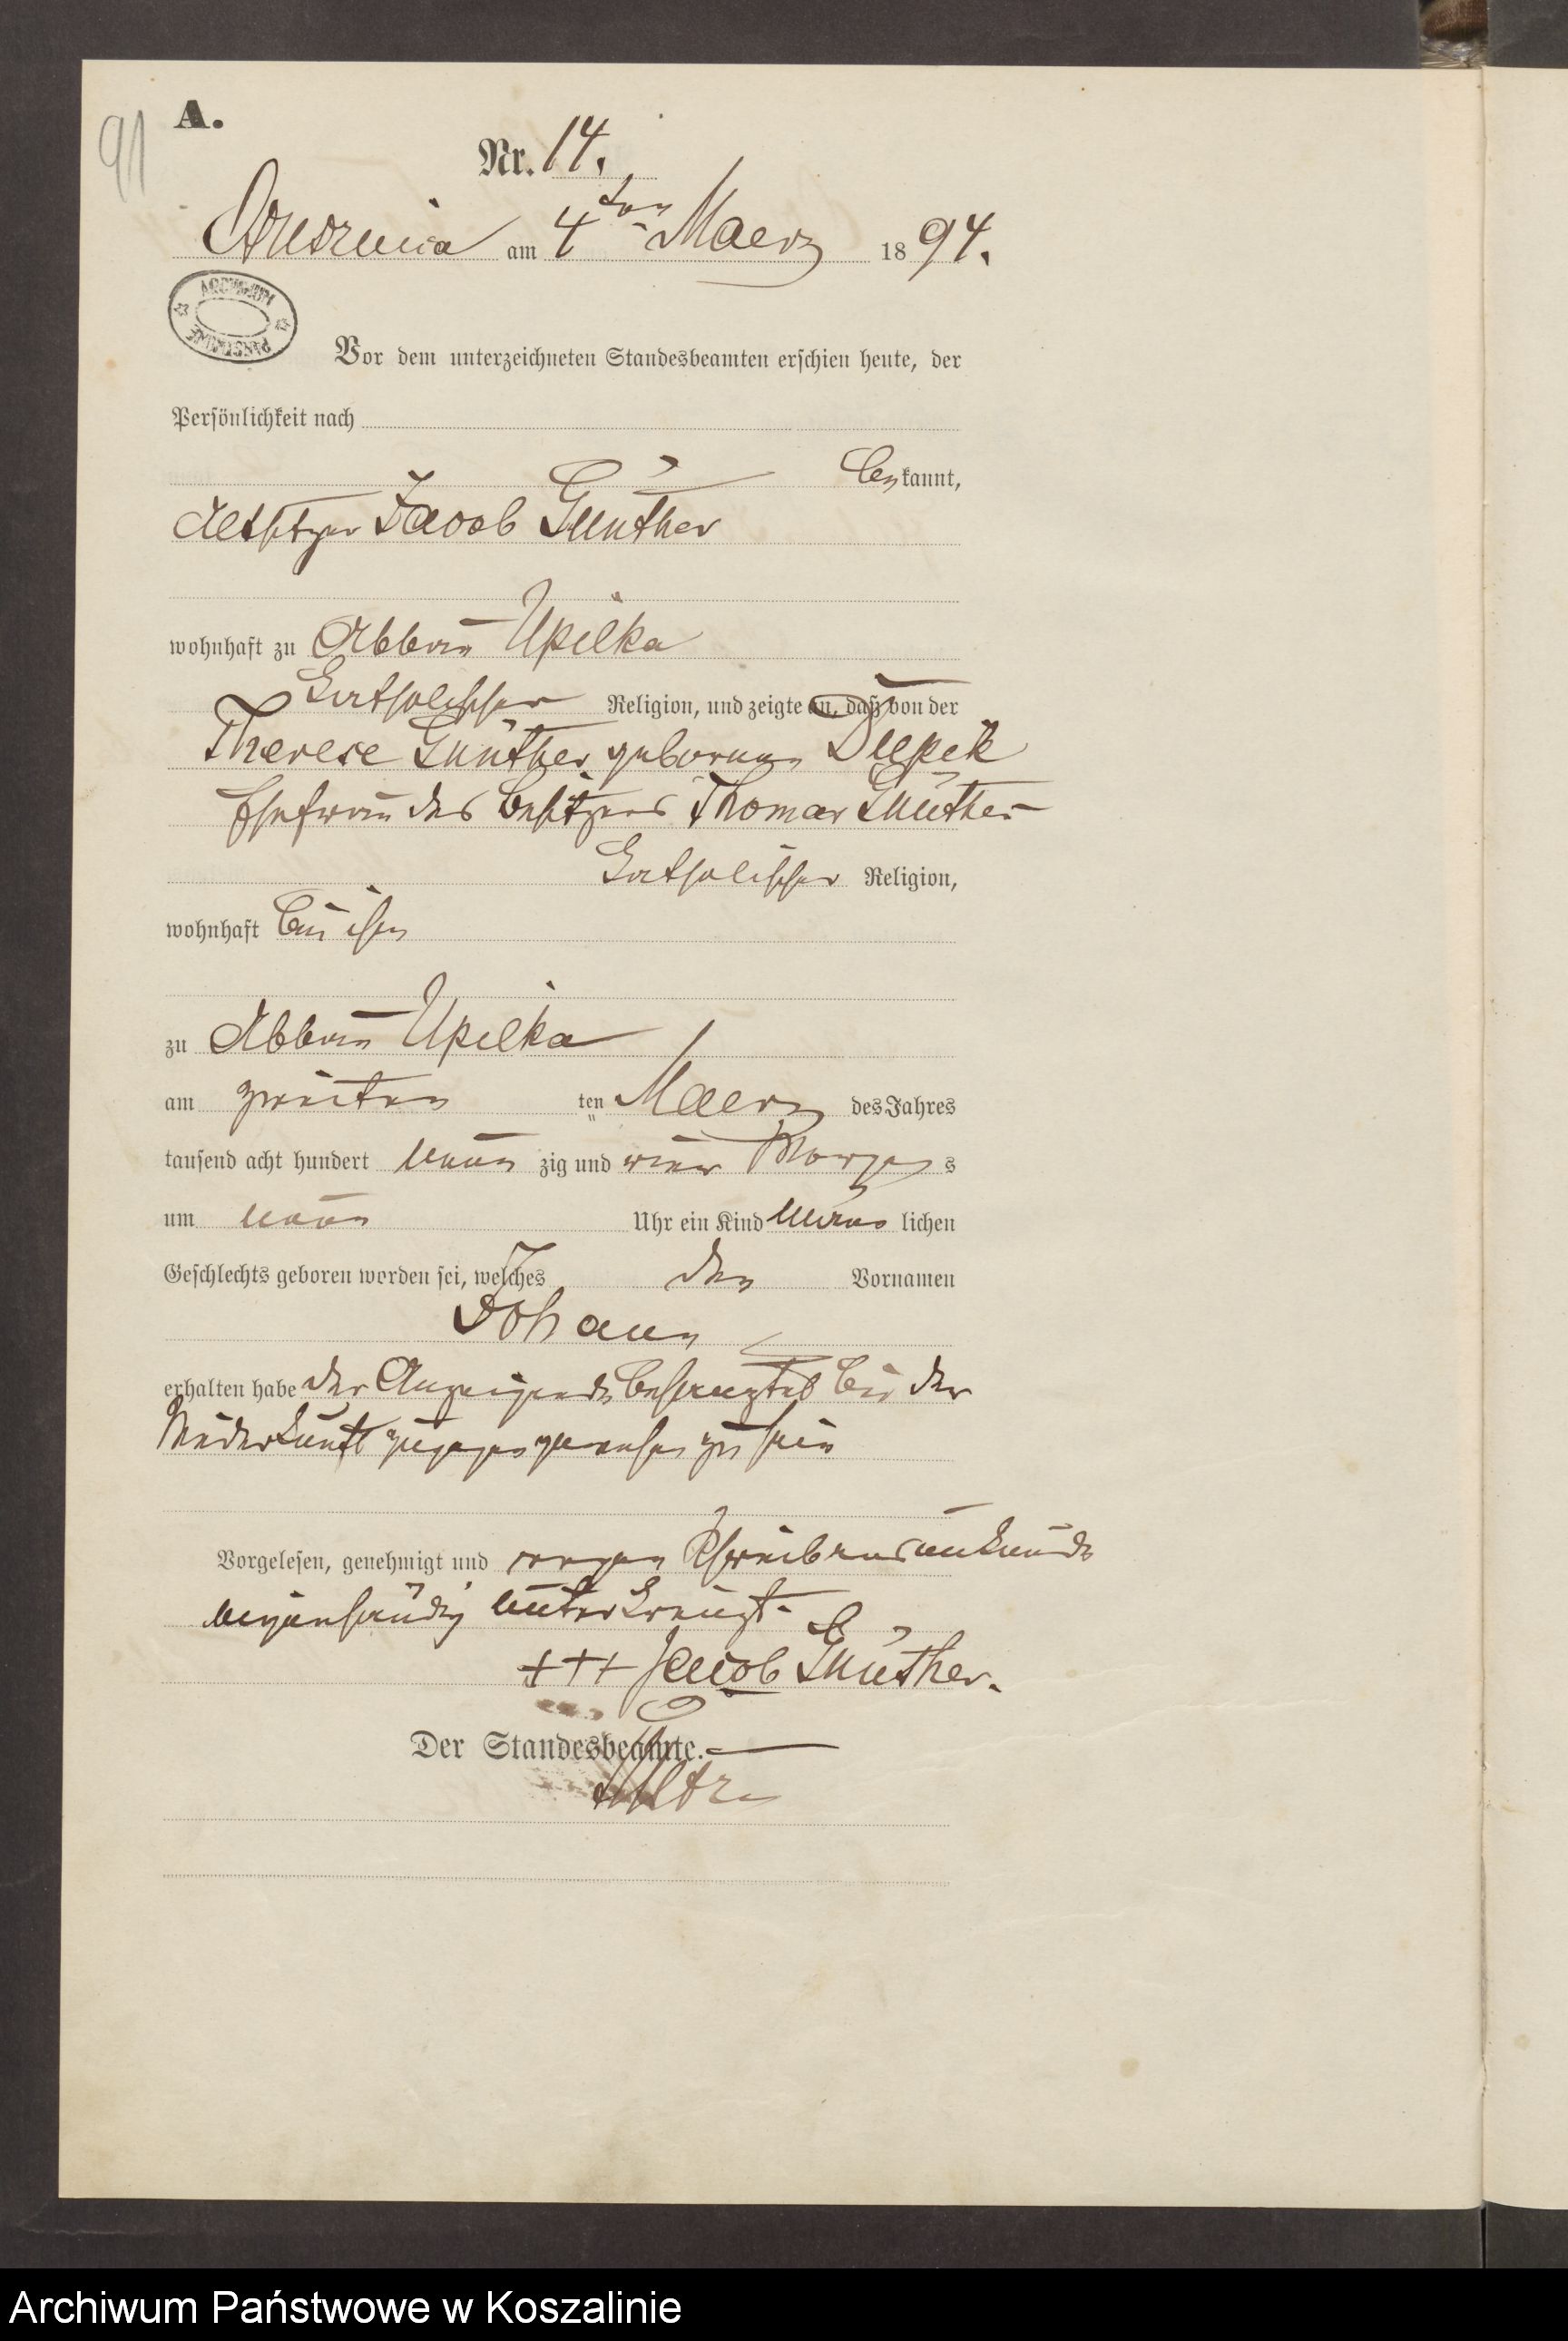 91
A.
Nr. 14.
am 4ten Maerz 1894.
ARCHIWUM
PAŃSTWOWE
Vor dem unterzeichneten Standesbeamten erschien heute, der
Persönlichkeit nach
bekannt,
Altsitzer Jacob Günther
wohnhaft zu Abbau Upilka
Katholischer Religion, und zeigte an, daß von der
Therese Günther geborenen
Ehefrau des Besitzers Thomas Günther
Katholischer Religion,
wohnhaft bei ihm
zu Abbau Upilka
am zweiten ten Maerz des Jahres
tausend acht hundert neun zig und vier Morgens
um neun Uhr ein Kind männlichen
Geschlechts geboren worden sei, welches den Vornamen
Johann
erhalten habe der Anzeigende bei der
Niederkunft zugegen gewesen zu sein
Vorgelesen, genehmigt und wegen Schreibensunkunde
unterkreuzt.
+++ Jacob Günther.
Der Standesbeamte.
Archiwum Państwowe w Koszalinie